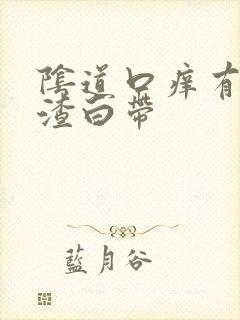 陰道口痒有
渣白帶
藍月谷